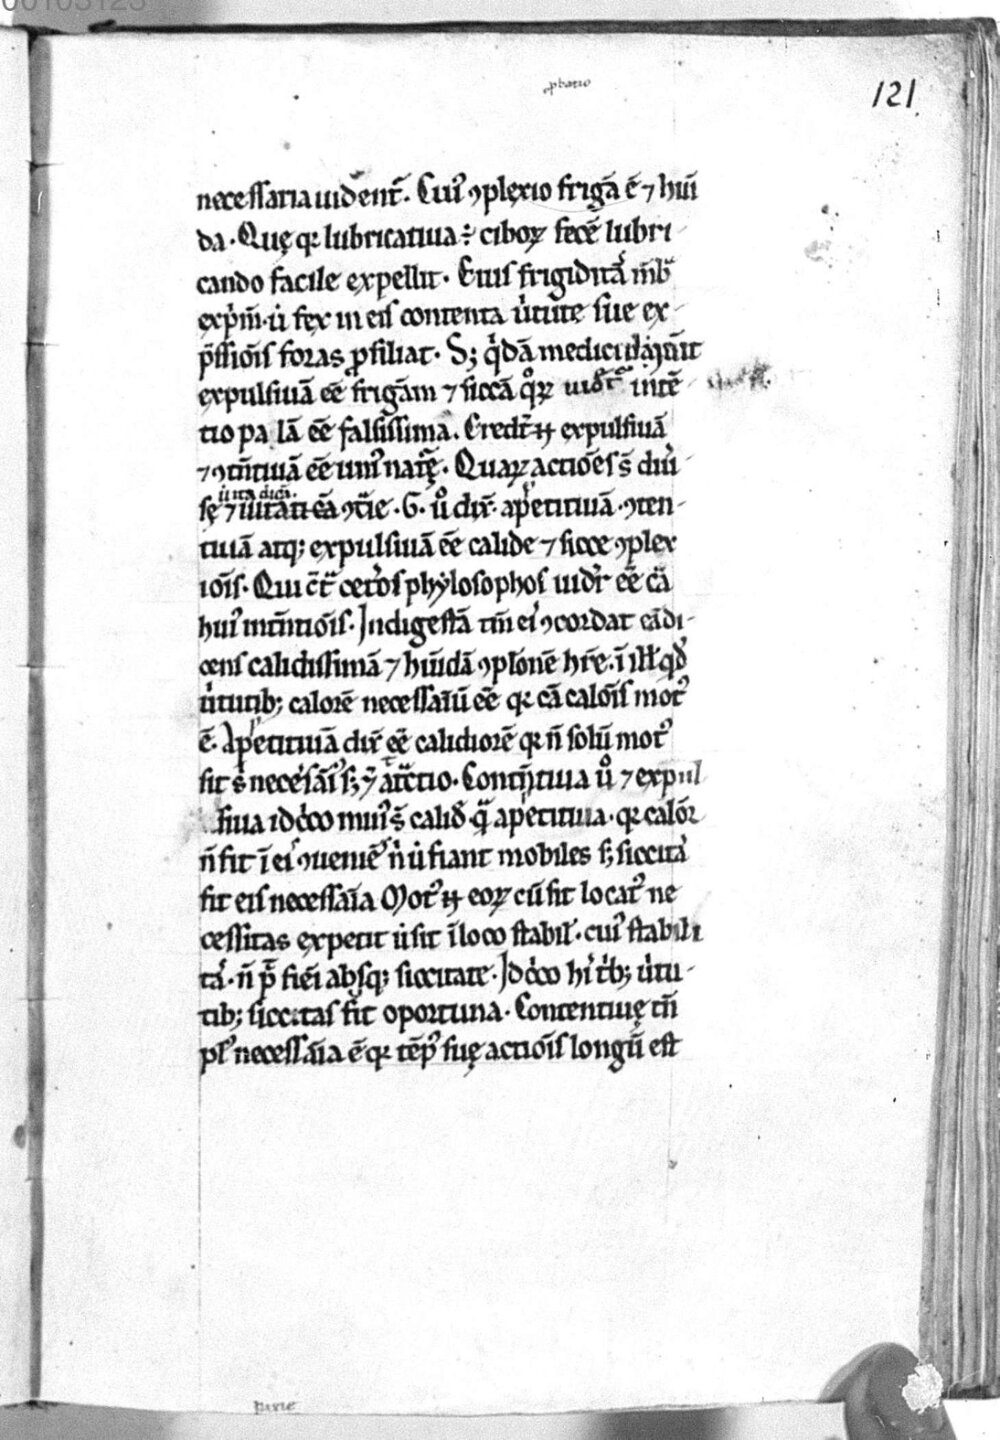 00103123
121
necessaria uident᷑. Cui᷒ ꝯplexio frigã ẽ ⁊ hui
da. Quę qꝛ lubricatiua ÷ ciboꝝ fecẽ lubri
cando facile expellit. Eius frigiditã mb᷑
exp̃m̃. ů fex in eis contenta u̾tute sue ex
p̃ssiõis foras ꝓsiliat. Sꝫ q̾dã medici
expulsiuã eẽ frigãm ⁊ siccã qͦꝝ uidr̃ intẽ
tio pa lã eẽ falsissima. Credr̃ expulsiuã
⁊ ꝯtñtiuã eẽ uni᷒ natę̃. Quaꝝ actiões s̃ diu̾
sę ⁊ ꝯt̃ie. G. uͦ dix̃. appetitiuã. ꝯten
tiuã atqꝫ expulsiuã eẽ calide ⁊ sicce ꝯplex
iõis. Qui c̃t̃ cet̾os phylosophos uidr̃ eẽ cã
hui᷒ intñtiõis. Indigestã tm̃ ei ꝯcordat eãdi
cens calidissimã ⁊ hũidã ꝯplõnẽ hr̃e. ĩ ill' qd̾
u̾tutibꝫ calorẽ necessaĩũ eẽ qꝛ cã calõis mot᷒
ẽ. Appetitiuã dix̃ eẽ calidiorẽ qꝛ ñ solũ mot᷒
fit attctio. Contñtiua uͦ ⁊ expul
siua idc̾co min᷒ s̃ calid̾ q̃ appetitiua. qꝛ calõr
ñ fit ĩ ei᷒ ꝯueniẽ ñ ů fiant mobiles sꝫ siccita̾
fit eis necessaĩa Mot᷒ eoꝝ cũ sit locat᷒ ne
cessitas expetit ů sit ĩ loco stabil'. cui᷒ stabili
ta̾. ñ p̃t fieĩ absqꝫ siccitate. Idc̾co hi᷒ t̾bꝫ u̾tu
tibꝫ siccitas fit oportuna. Contentiuę tñ
pl᷒ necessaĩa ẽ qꝛ tẽp᷒ suę actiõis longũ est